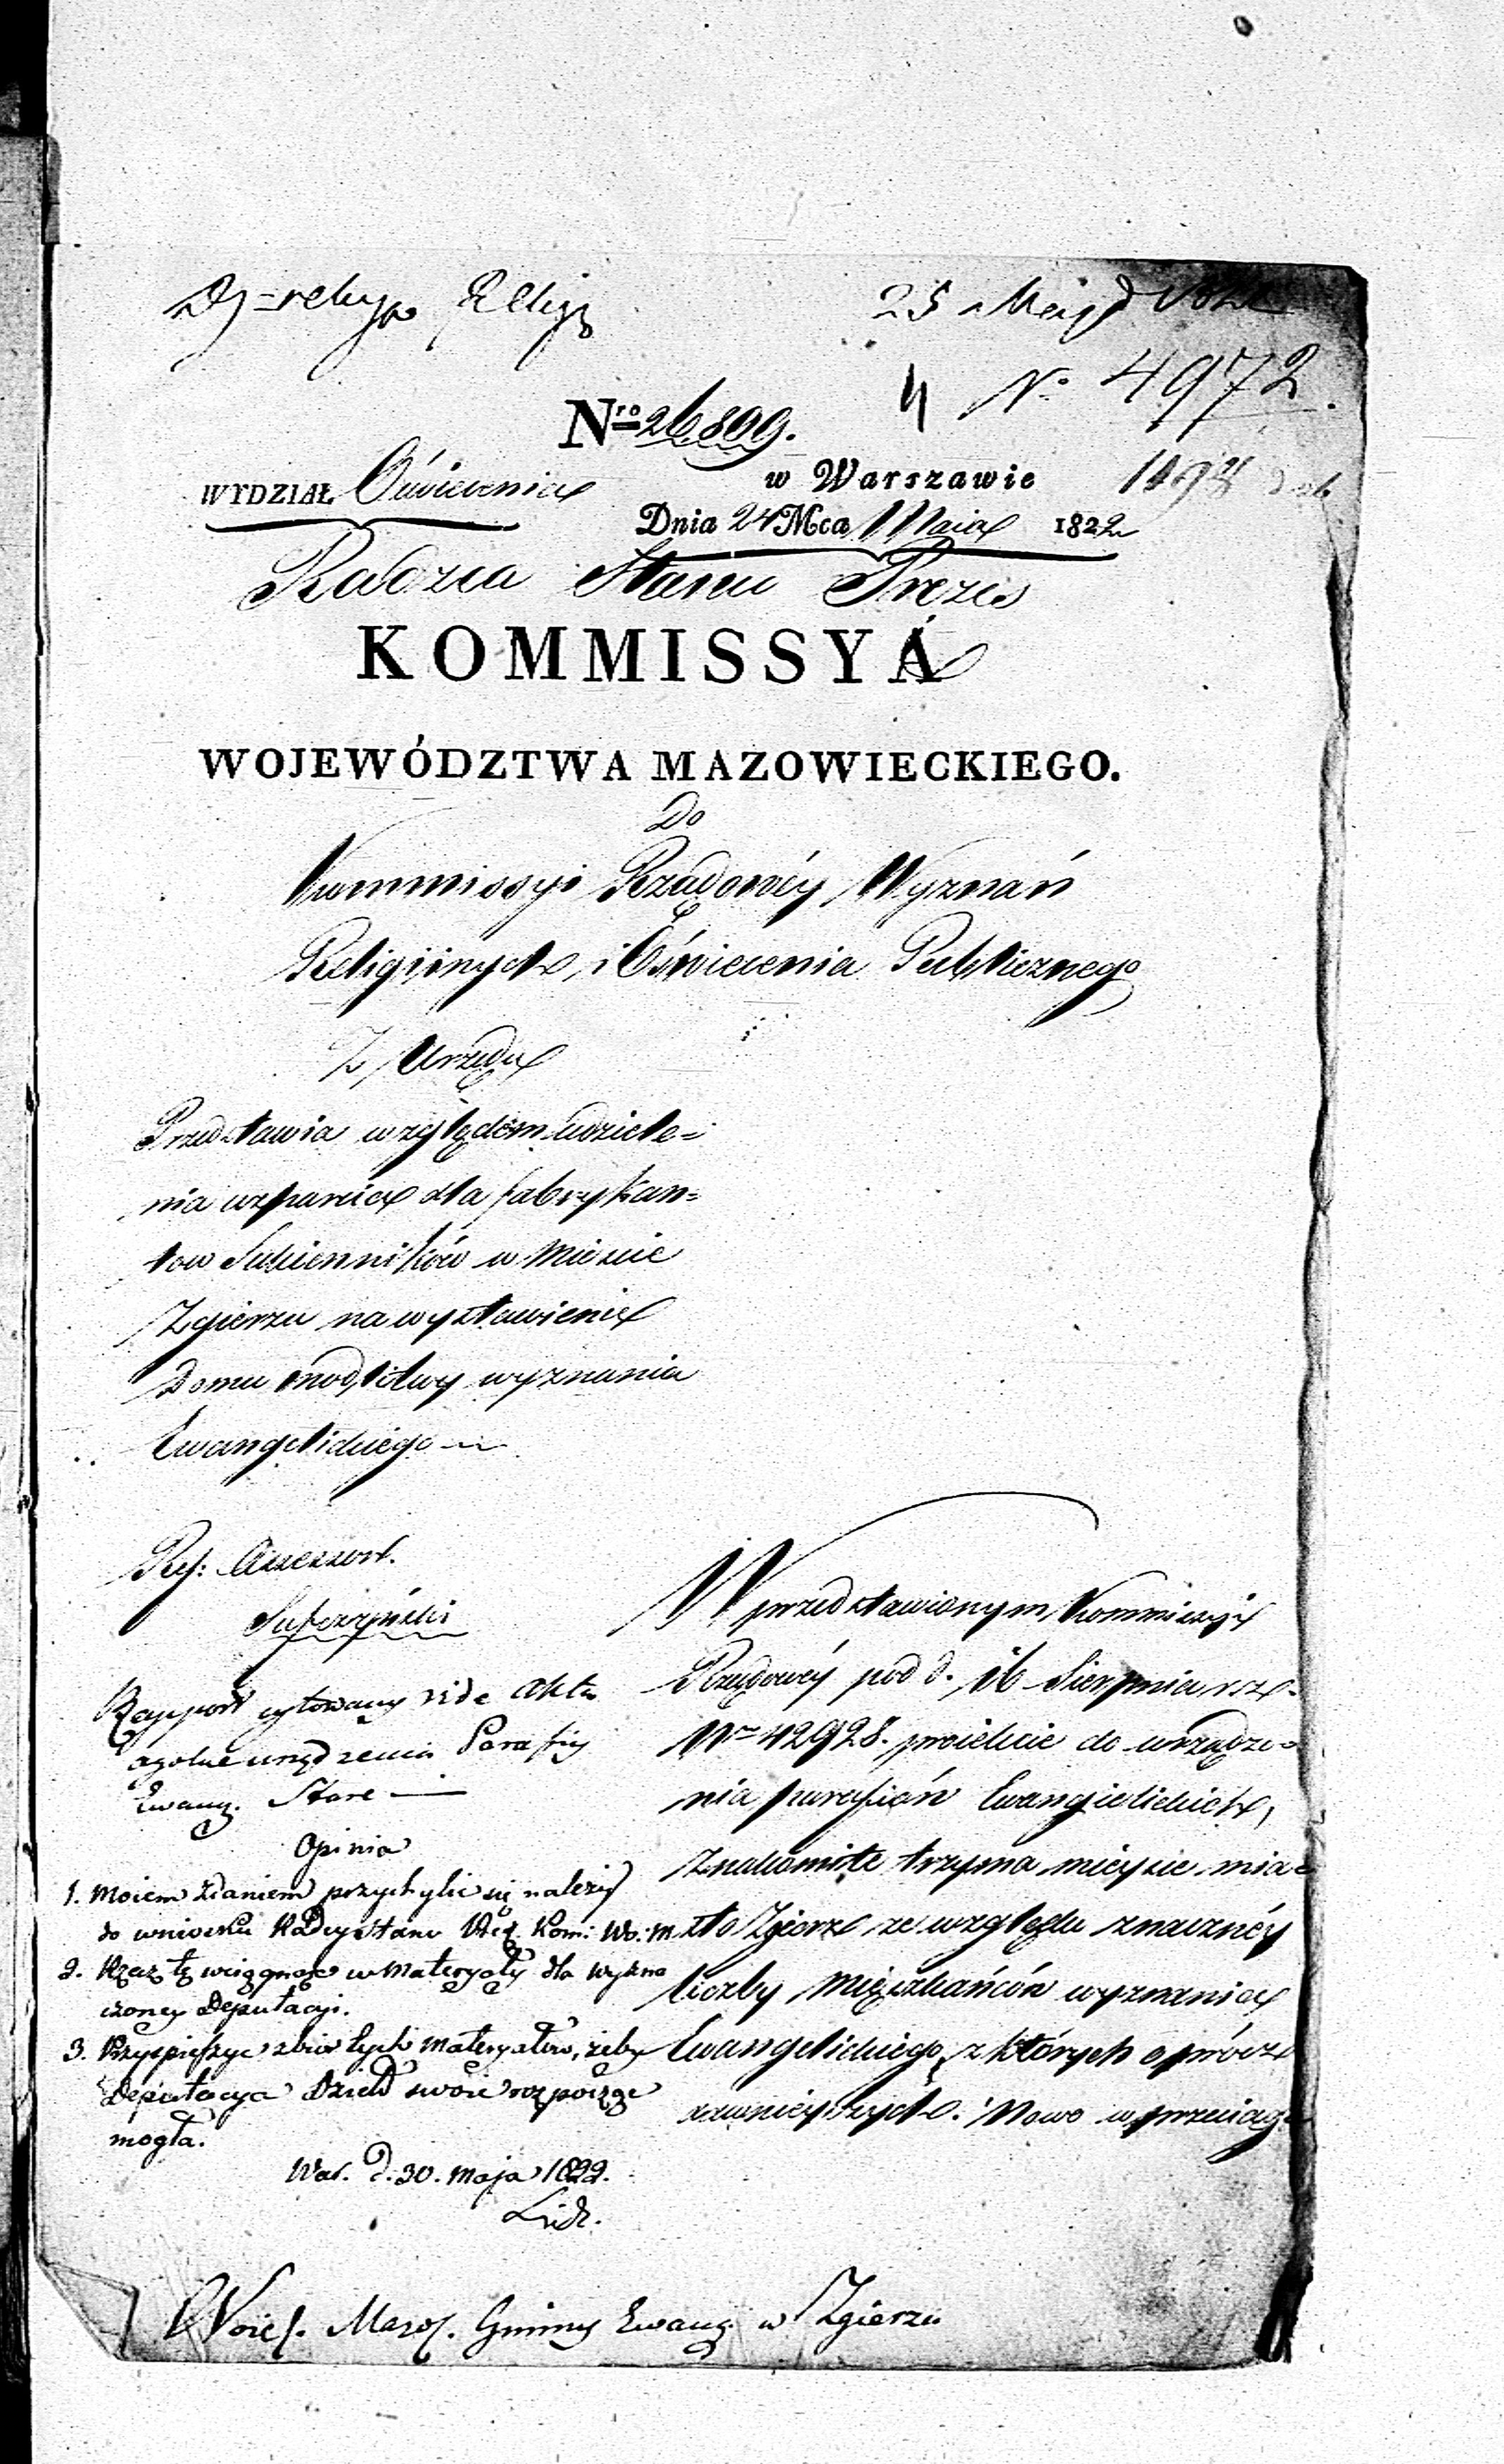 25 Maja
No 4972.
Nro 26809.
WYDZIAŁ Oświecenia
w Warszawie
Dnia 24 Mca Maia 1822
Radzca Stanu Prezes
KOMMISSYA
WOJEWÓDZTWA MAZOWIECKIEGO.
Do
Kommissyi Rządowéy Wyznań
Religiinych i Oświecenia Publicznego
Z Urzędu
Przedstawia względem udziele=
nia wsparcia dla fabrykan=
tow Sukienników w Mieście
Zgierzu na wystawienie
Domu modlitwy wyznania
Ewangelickiego
Ref: Assessor.
Rapport cytowany vide Akta
ogolne urządzenia Parafiy
Ewang. Stare —
Opinia
1. Moiem zdaniem przychylić się należy
do wniosku Radcy Stanu Prez. Kom: Wo: M.
2. Rzecz tę wciągnąć w Materyały dla wyzna
czoney Deputacyi.
3. Przyspieszyć zbiór tych materyałów, żeby
Deputacya Dzieło swoie rozpocząć
mogła.
War. d. 30. Maja 1822.
W przedstawionym Kommissyi
Rządowéy pod d. 16 Sierpnia r. z.
Nro 42928. proiekcie do urządze=
nia parafiań Ewangielickich,
znakomite trzyma mieysce mia
sto Zgierz ze względu znacznéy
liczby mięszkańców wyznania
Ewangelickiego, z których oprócz
dawnieyszych. Nowo w przeciągu
Woie. Mazo. Gminy Ewang. w Zgierzu